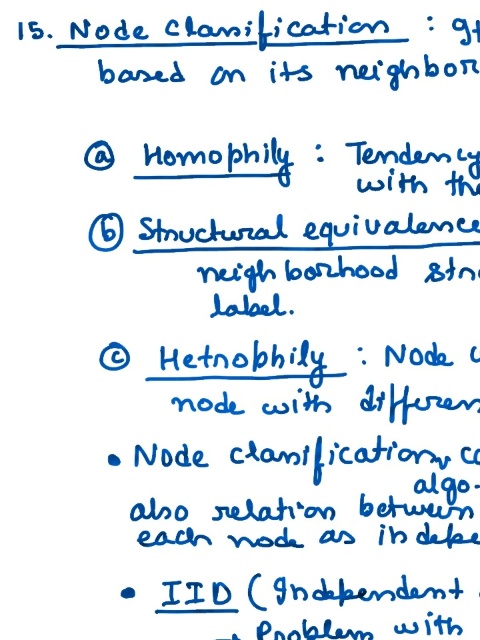 15. Node classification :
based on its
ⓐ Homophily : Tendency
with
ⓑ Structural equivalence
neighborhood
label.
ⓒ Hetrophily : Node
node with
• Node classification,
algo-
also relation between
each node as
• IID (Independent
→ Problem with